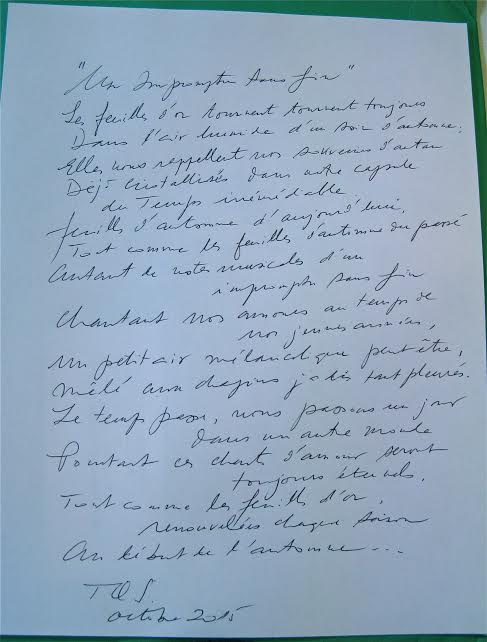 "Un Impromptu sans fin"
Les feuilles d'or tournent tournent toujours
Dans l'air humide d'un soir d'automne.
Elles nous rappellent nos souvenirs d'antan
Déjà cristallisés dans notre capsule
du Temps irrémédiable
feuilles d'automne d'aujourd'hui,
Tout comme les feuilles d'automne du passé
Autant de notes musicales d'un
impromptu sans fin
Chantant nos amours au temps de
nos jeunes années,
Un petit air mélancolique peut être,
Mêlé aux chagrins jadis tant pleurés.
Le temps passe, nous passons un jour
dans un autre monde
Pourtant ces chants d'amour seront
toujours éternels,
Tout comme les feuilles d'or,
renouvelées chaque saison
Au début de l'automne...
octobre 2015